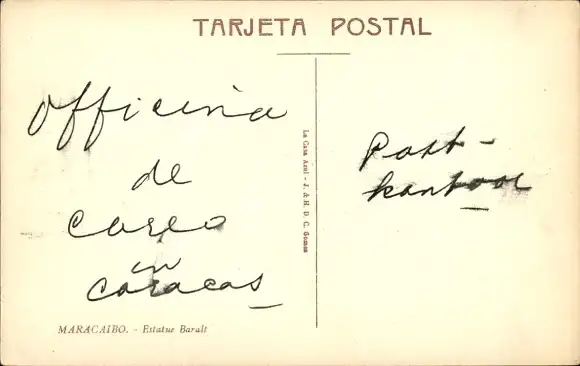 TARJETA POSTAL
Officina
de
Coreo
in
Caracas
Post-
kantoor
La Casa Azul - J. & H. D. C. Gomes
MARACAIBO. - Estatue Baralt